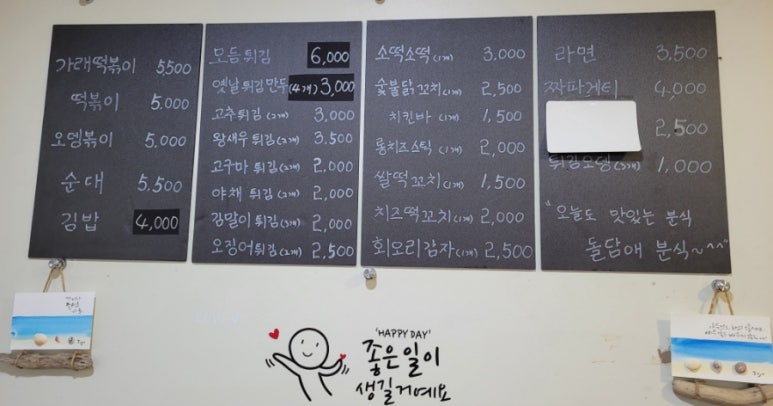 가래떡볶이 5,500
떡볶이 5,000
오뎅볶이 5,000
순대 5,500
김밥 4,000
모듬튀김 6,000
옛날튀김만두(4개) 3,000
고추튀김(2개) 3,000
왕새우튀김(2개) 3,500
고구마튀김(2개) 2,000
야채튀김(2개) 2,000
김말이튀김(3개) 2,000
오징어튀김(2개) 2,500
소떡소떡(1개) 3,000
숯불닭꼬치(1개) 2,500
치킨바(1개) 1,500
롱치즈스틱(1개) 2,000
쌀떡꼬치(1개) 1,500
치즈떡꼬치(1개) 2,000
회오리감자(1개) 2,500
라면 3,500
짜파게티 4,000
2,500
튀김오뎅(3개) 1,000
"오늘도 맛있는 분식
돌담애 분식~^^"
'HAPPY DAY'
좋은일이
생길거예요